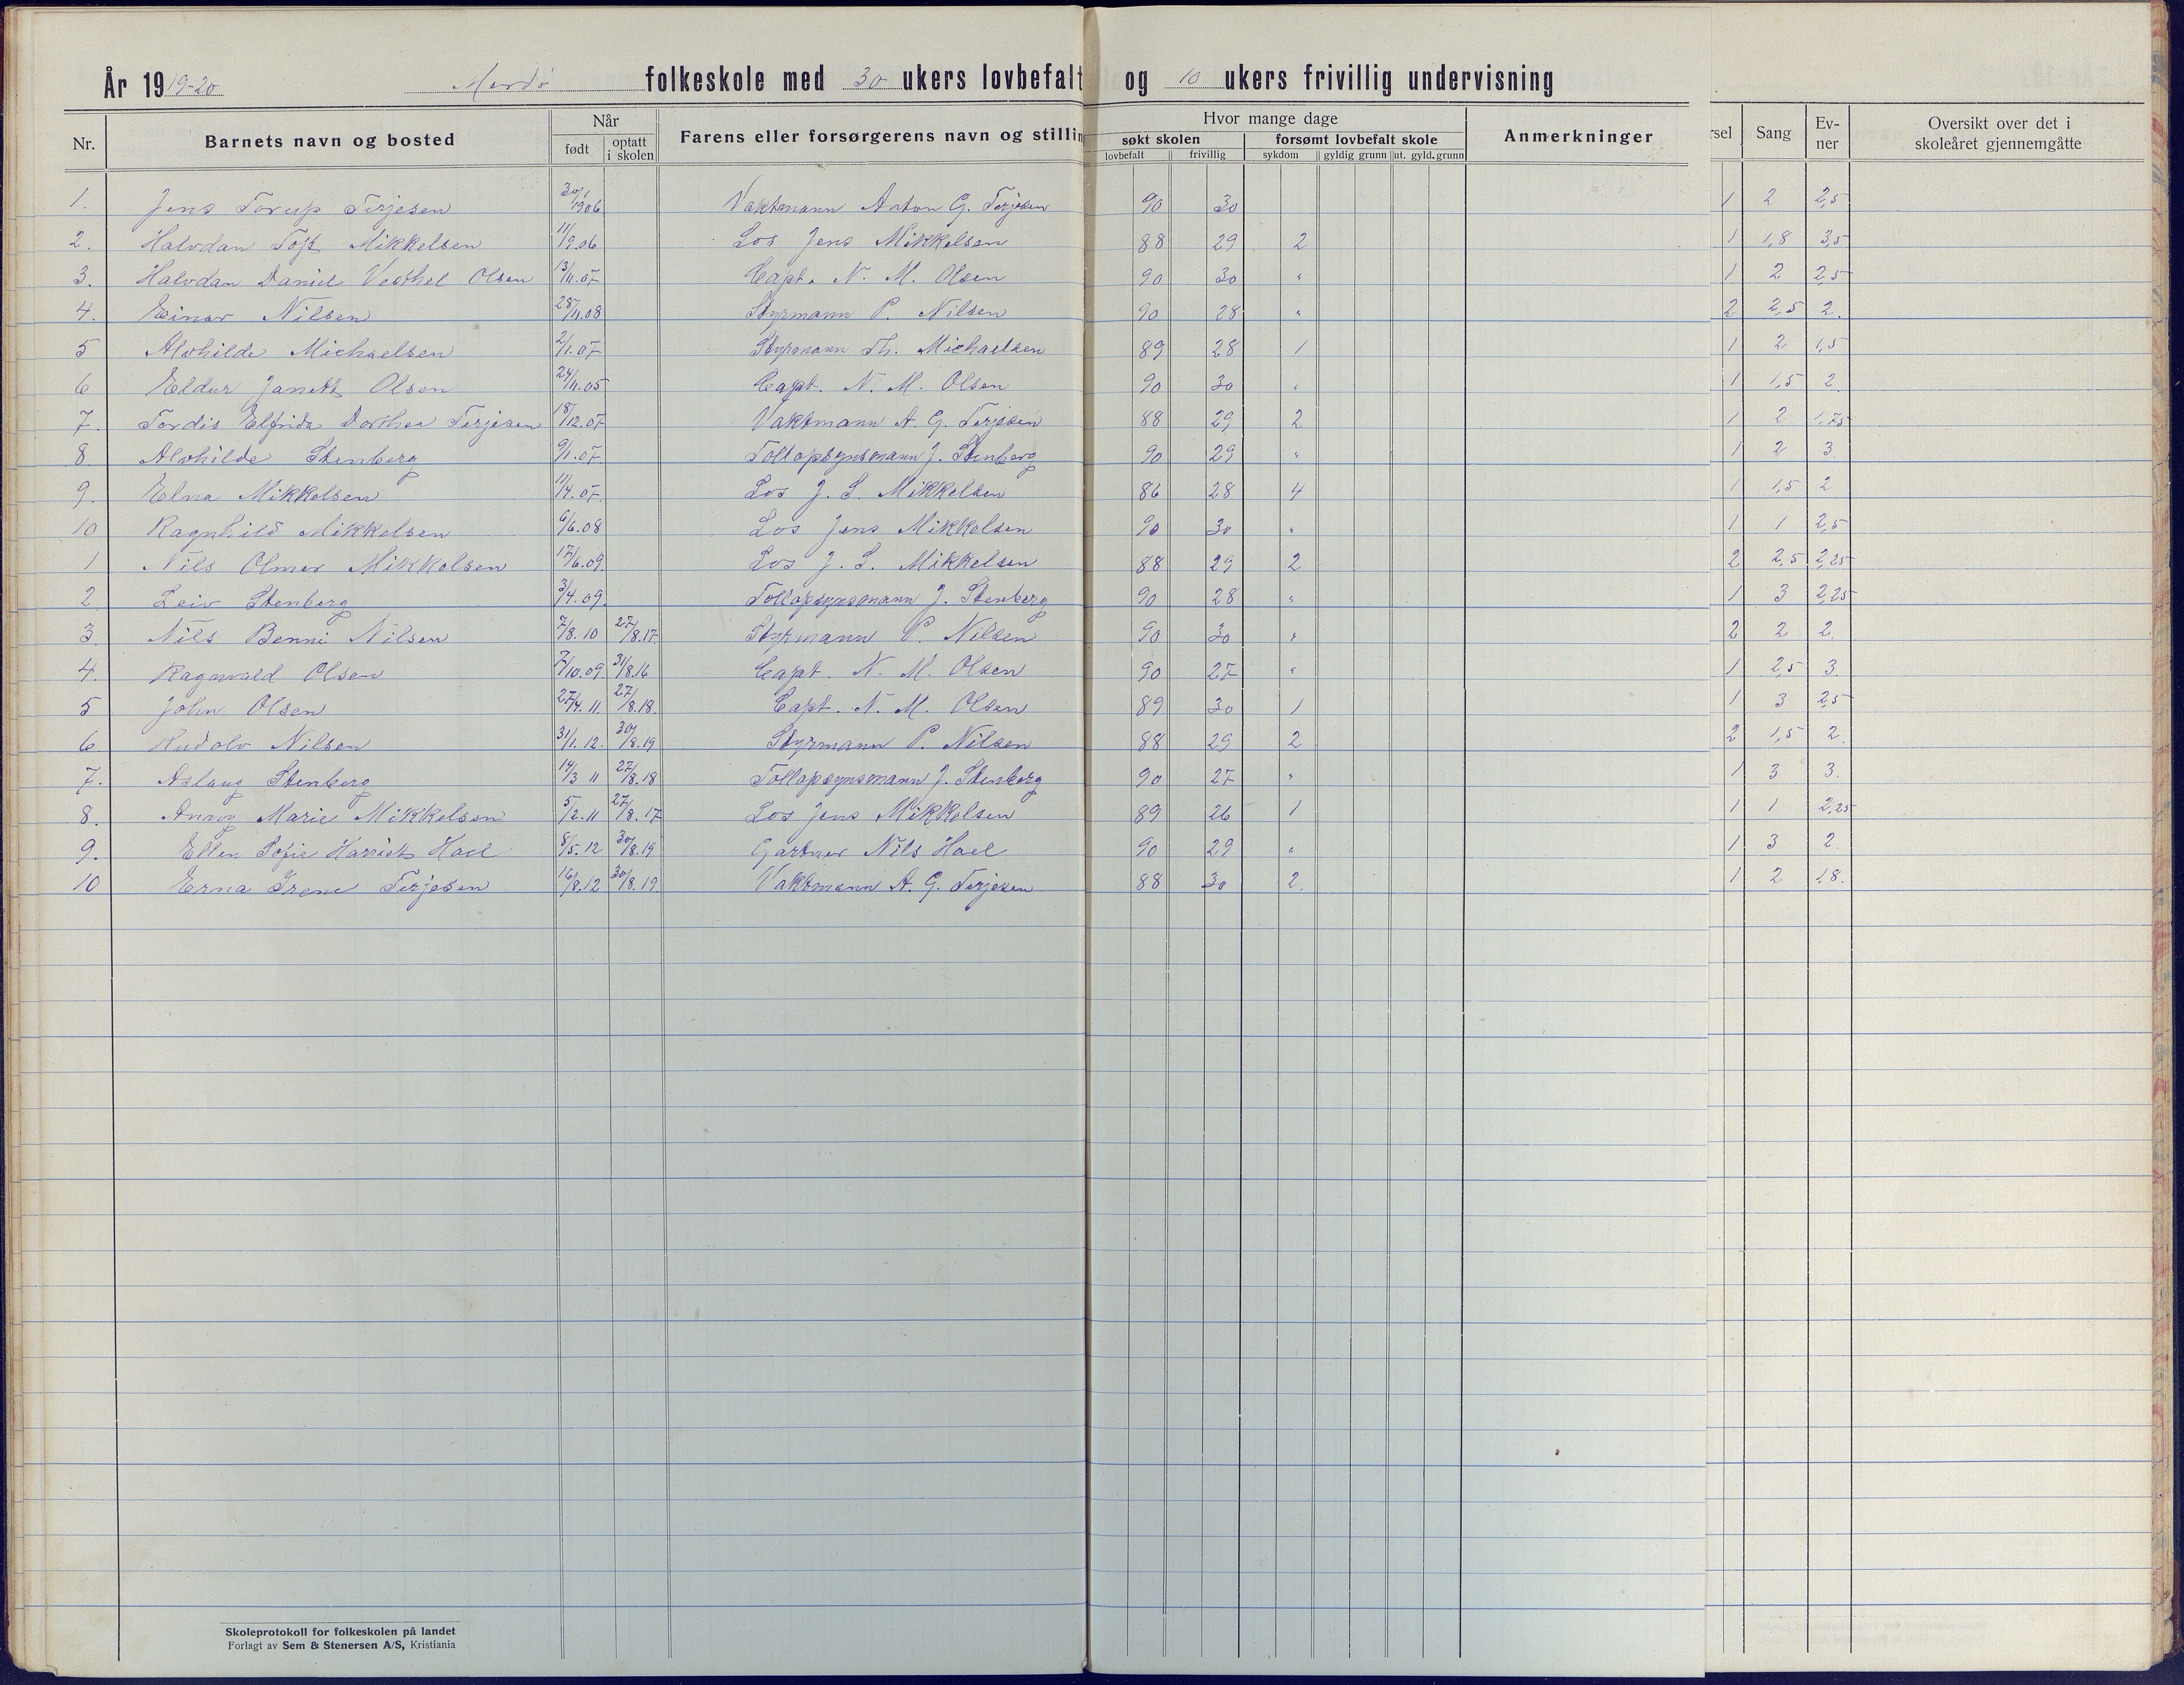 År 1919-20 Merdö folkeskole med 30 ukers lovbefalt og 10 ukers frivillig undervisning
Nr. Barnets navn og bosted Når født optatt i skolen Farens eller forsørgerens navn og stillin Hvor mange dage søkt skolen lovbefalt frivillig forsømt lovbefalt skole sykdom gyldig grunn ut. gyld. grunn Anmerkninger rsel Sang Ev-ner Oversikt over det i skoleåret gjennemgåtte
1. Jens Torup Terjesen 30/1 1906 Vaktmann Anton G. Terjesen 90 30 1 2 2,5
2. Halvdan Toft Mikkelsen 11/9.06 Los Jens Mikkelsen 88 29 2 1 1,8 3,5
3. Halvdan Daniel Vesthel Olsen 13/11.07 Capt. N. M. Olsen 90 30 " 1 2 2,5
4. Einar Nilsen 28/11.08 Styrmann P. Nilsen 90 28 " 2 2,5 2.
5 Alvhilde Michaelsen 2/1.07 Styrmann Th. Michaelsen 89 28 1 1 2 1,5
6 Eldur Janett Olsen 24/11.05 Capt. N. M. Olsen 90 30 " 1 1,5 2.
7. Tordis Elfrida Dorthea Terjesen 18/12.07 Vaktmann A. G. Terjesen 88 29 2 1 2 1,75
8. Alvhilde Stenberg 9/1.07 Tollopsynsmann J. Stenberg 90 29 " 1 2 3.
9. Elna Mikkelsen 11/4.07. Los J. S. Mikkelsen 86 28 4 1 1,5 2
10 Ragnhild Mikkelsen 6/6.08 Los Jens Mikkelsen 90 30 " 1 1 2,5
1 Nils Olmer Mikkelsen 17/6.09. Los J. S. Mikkelsen 88 29 2 2 2,5 2,25
2. Leiv Stenberg 3/4.09. Tollopsynsmann J. Stenberg 90 28 " 1 3 2,25
3. Nils Benni Nilsen 7/8.10 27/8.17 Styrmann P. Nilsen 90 30 " 2 2 2.
4. Ragnvald Olsen 7/10.09. 31/8.16 Capt. N. M. Olsen 90 27 " 1 2,5 3.
5 John Olsen 27/4.11. 27/8.18. Capt. N. M. Olsen 89 30 1 1 3 2,5
6. Rudolv Nilsen 31/1.12. 30/8.19 Styrmann P. Nilsen 88 29 2 2 1,5 2.
7. Aslaug Stenberg 14/3 11 27/8.18 Tollopsynsmann J. Stenberg 90 27 " 1 3 3.
8. Annvy Marie Mikkelsen 5/2.11 27/8.17 Los Jens Mikkelsen 89 26 1 1 1 2,25
9. Ellen Sofie Harriets Hael 8/5.12 30/8.19 Gartner Nils Hael 90 29 " 1 3 2.
10 Erna Irene Terjesen 16/8.12 30/8.19 Vaktmann A. G. Terjesen 88 30 2. 1 2 1,8.
Skoleprotokoll for folkeskolen på landet
Forlagt av Sem & Stenersen A/S, Kristiania